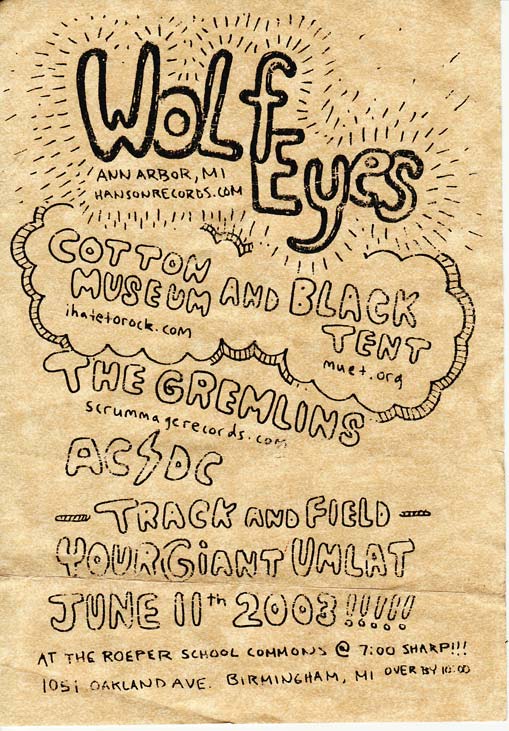 Wolf
Eyes
ANN ARBOR, MI
HANSONRECORDS.COM
COTTON
MUSEUM AND BLACK
TENT
ihatetorock.com
muet.org
THE GREMLINS
scrummagerecords.com
AC⚡DC
— TRACK AND FIELD —
YOUR GIANT UMLAT
JUNE 11th 2003!!!!!
AT THE ROEPER SCHOOL COMMONS @ 7:00 SHARP!!!
1051 OAKLAND AVE. BIRMINGHAM, MI OVER BY 10:00